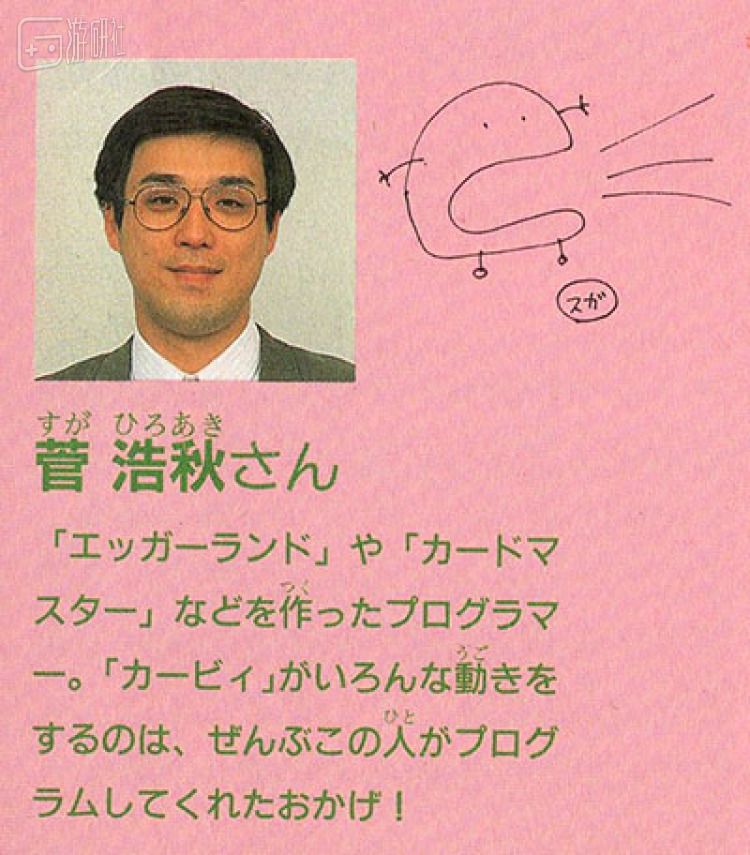 游研社
スガ
すが ひろあき
菅 浩秋さん
「エッガーランド」や「カードマ
スター」などを作ったプログラマ
つく
ー。「カービィ」がいろんな動きを
うご
するのは、ぜんぶこの人がプログ
ひと
ラムしてくれたおかげ！